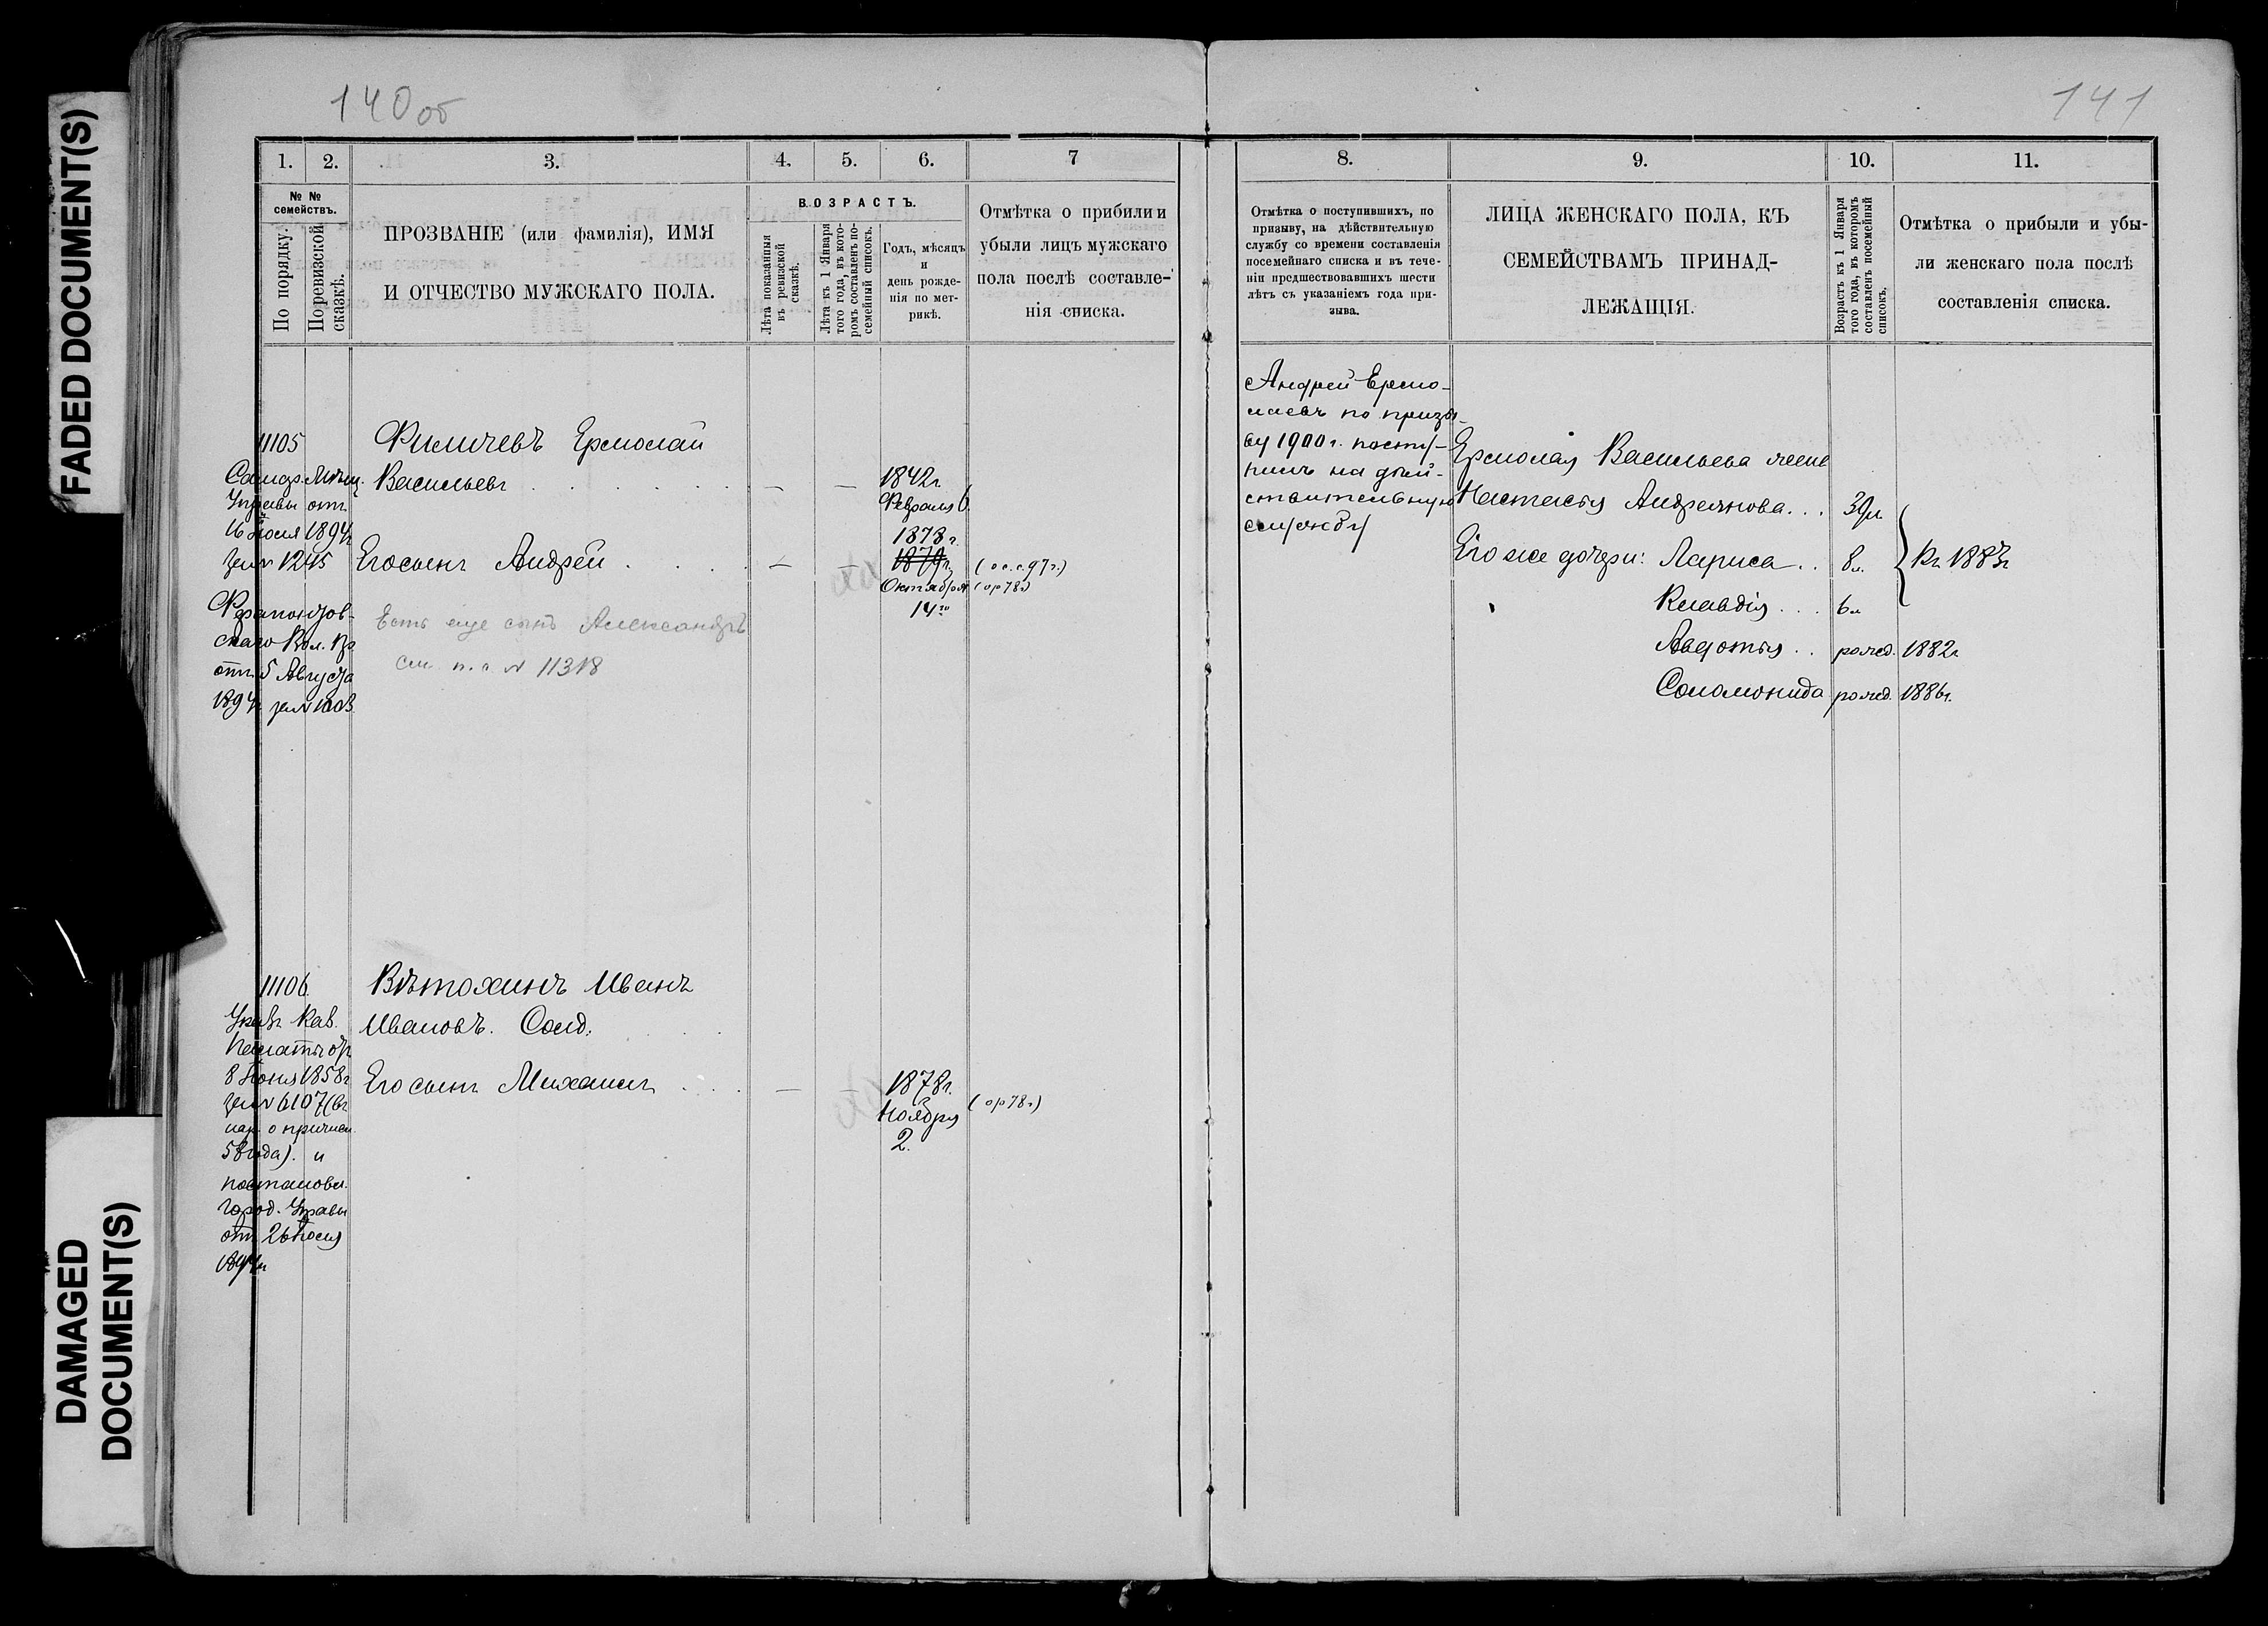 FADED DOCUMENT(S)
DAMAGED
DOCUMENT(S)
140 об
1. 2. 3. 4. 5. 6. 7
№ №
семействъ.
По порядку.
По ревизской
сказкѣ.
ПРОЗВАНІЕ (или фамилія), ИМЯ
И ОТЧЕСТВО МУЖСКАГО ПОЛА.
ВОЗРАСТЪ.
Лѣта показанныя
въ ревизской
сказкѣ.
Лѣта къ 1 Января
того года, въ кото-
ромъ составленъ по-
семейный списокъ.
Годъ, мѣсяцъ
и
день рожде-
нія по мет-
рикѣ.
Отмѣтка о прибыли и
убыли лицъ мужскаго
пола послѣ составле-
нія списка.
11105
Управы отъ
16 Іюля 1894г
за № 1245
отъ 5 Августа
Ермолай
Васильевъ
1842г.
Февраля 6.
Его сынъ Андрей
1878г.
1879г.
Октября
14го
(ос.с. 97г.)
(ор 78г)
Есть еще сынъ Александръ
см. п. с. № 11318
11106
Указъ Каз.
Палаты отъ
8 Іюня 1858г
за № 6107 (въ
нар. о причисл.
58 года). и
постановл.
Город. Управы
отъ 26 Іюля
1894г
Вѣтохинъ Иванъ
Ивановъ. Солд.
Его сынъ Михаилъ
1878г.
Ноября
2.
(ор 78г)
141
8. 9. 10. 11.
Отмѣтка о поступившихъ, по
призыву, на дѣйствительную
службу со времени составленія
посемейнаго списка и въ тече-
ніи предшествовавшихъ шести
лѣтъ съ указаніемъ года при-
зыва.
ЛИЦА ЖЕНСКАГО ПОЛА, КЪ
СЕМЕЙСТВАМЪ ПРИНАД-
ЛЕЖАЩІЯ.
Возрастъ къ 1 Января
того года, въ которомъ
составленъ посемейный
списокъ.
Отмѣтка о прибыли и убы-
ли женскаго пола послѣ
составленія списка.
Андрей Ермо-
лаевъ по призы-
ву 1900г. посту-
пилъ на дѣй-
ствительную
службу
Ермолая Васильева жена
Настасья Андреянова... 39л
Его же дочери: Лариса.. 8л.
Клавдія... 6л
Къ 1883г
Авдотья.. рожд. 1882г
Соломонида рожд. 1886г.